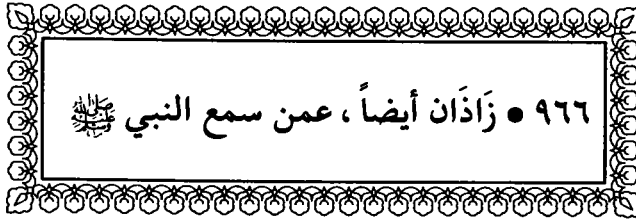 ٩٦٦ • زَاذَان أيضاً ، عمن سمع النبي ﷺ